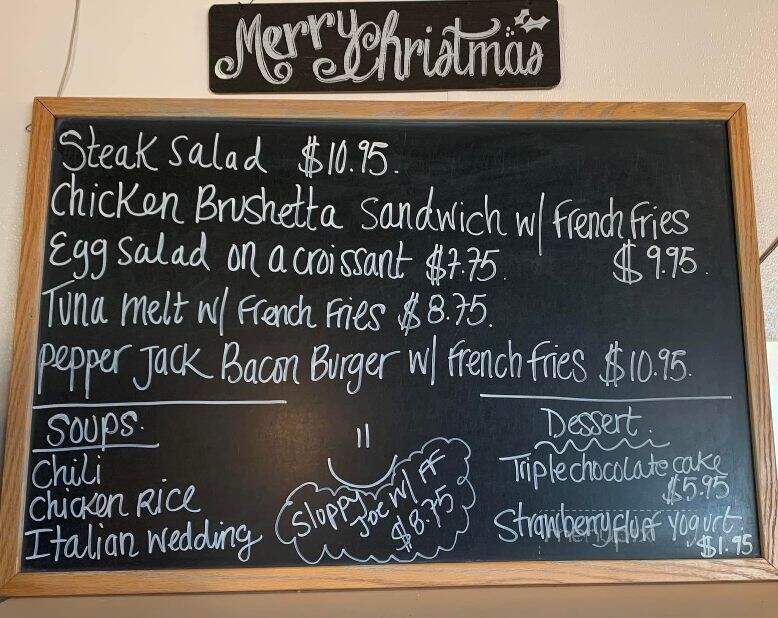 Merry Christmas
Steak Salad $10.95.
Chicken Brushetta Sandwich w/ French Fries
$9.95.
Egg Salad on a croissant $7.75.
Tuna melt w/ French Fries $8.75.
Pepper Jack Bacon Burger w/ French Fries $10.95.
Soups.
Chili
Chicken Rice
Italian Wedding
Sloppy
Joe w/ FF
$8.75
Dessert.
Triple chocolate cake
$5.95
Strawberry fluff yogurt.
$1.95